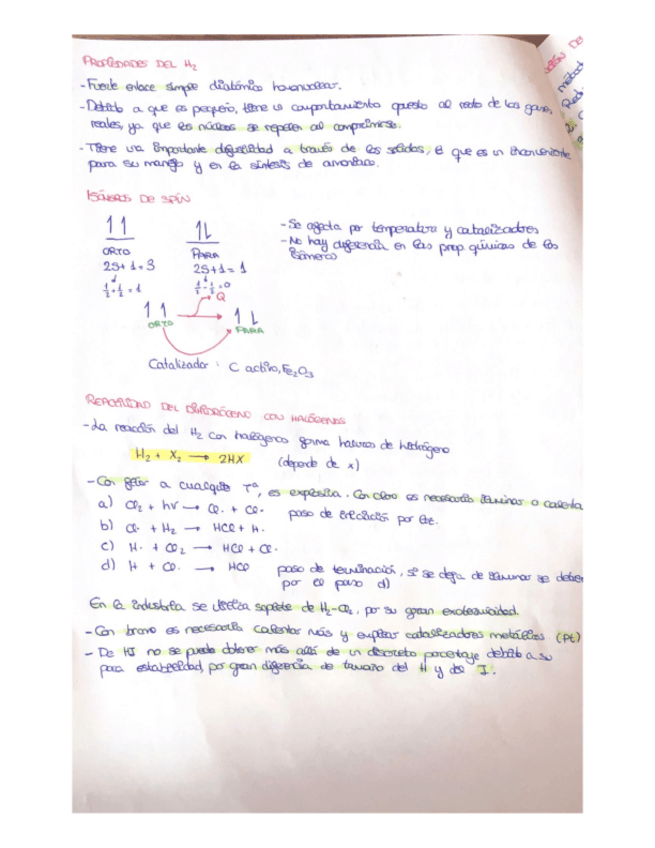 PROPIEDADES DEL H2
- Fuerte enlace simple diatómico homonuclear.
- Debido a que es pequeño, tiene un comportamiento opuesto al resto de los gases
reales, ya que los núcleos se repelen al comprimirse.
- Tiene una importante difusividad a través de los sólidos, lo que es un inconveniente
para su manejo y en la síntesis de amoniaco.
ISÓMEROS DE SPÍN
1 1 1↓
ORTO PARA
2S+1=3 2S+1=1
1/2+1/2=1 1/2-1/2=0
- Se afecta por temperatura y catalizadores
- No hay diferencia en las prop químicas de los
isómeros
Q
1 1 → 1↓
ORTO PARA
Catalizador : C activo, Fe2O3
REACTIVIDAD DEL DIHIDRÓGENO CON HALÓGENOS
- La reacción del H2 con halógenos forma haluros de hidrógeno
H2 + X2 → 2HX (depende de x)
- Con flúor a cualquier Tª, es explosiva. Con cloro es necesario iluminar o calentar
a) Cl2 + hν → Cl· + Cl· paso de iniciación por
b) Cl· + H2 → HCl + H·
c) H· + Cl2 → HCl + Cl·
d) H + Cl· → HCl paso de terminación, si se deja de iluminar se
por el paso d)
En la industria se utiliza soplete de H2-Cl2, por su gran exotermicidad.
- Con bromo es necesario calentar más y emplear catalizadores metálicos (Pt)
- De HI no se puede obtener más allá de un discreto porcentaje debido a su
poca estabilidad, por gran diferencia de tamaño del H y del I.